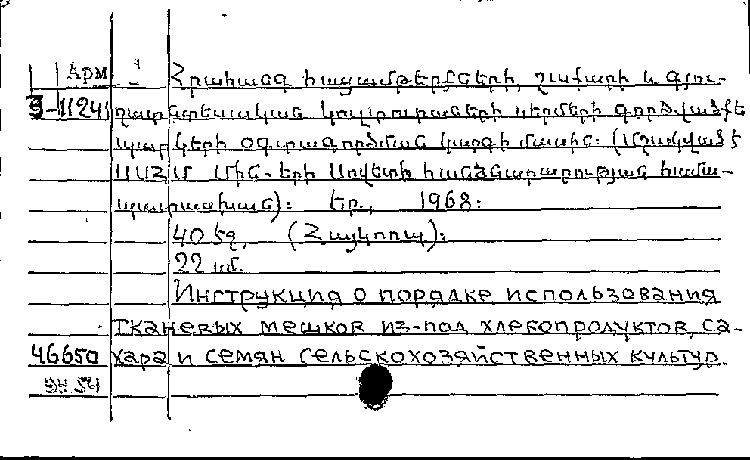 Арм 1 Հրահանգ հացամթերքների, շաքարի և գյու-
9-11241 ղատնտեսական կուլտուրաների սերմերի գործվածքե
պարկերի օգտագործման կարգի մասին: (Մշակված է
ՍՍՀՄ Մին-երի Սովետի հանձնարարության համա-
պատասխան): Եր., 1968:
40 էջ, (Հայկոոպ):
22 սմ.
Инструкция о порядке использования
тканевых мешков из-под хлебопродуктов, са-
46650 хара и семян сельскохозяйственных культур.